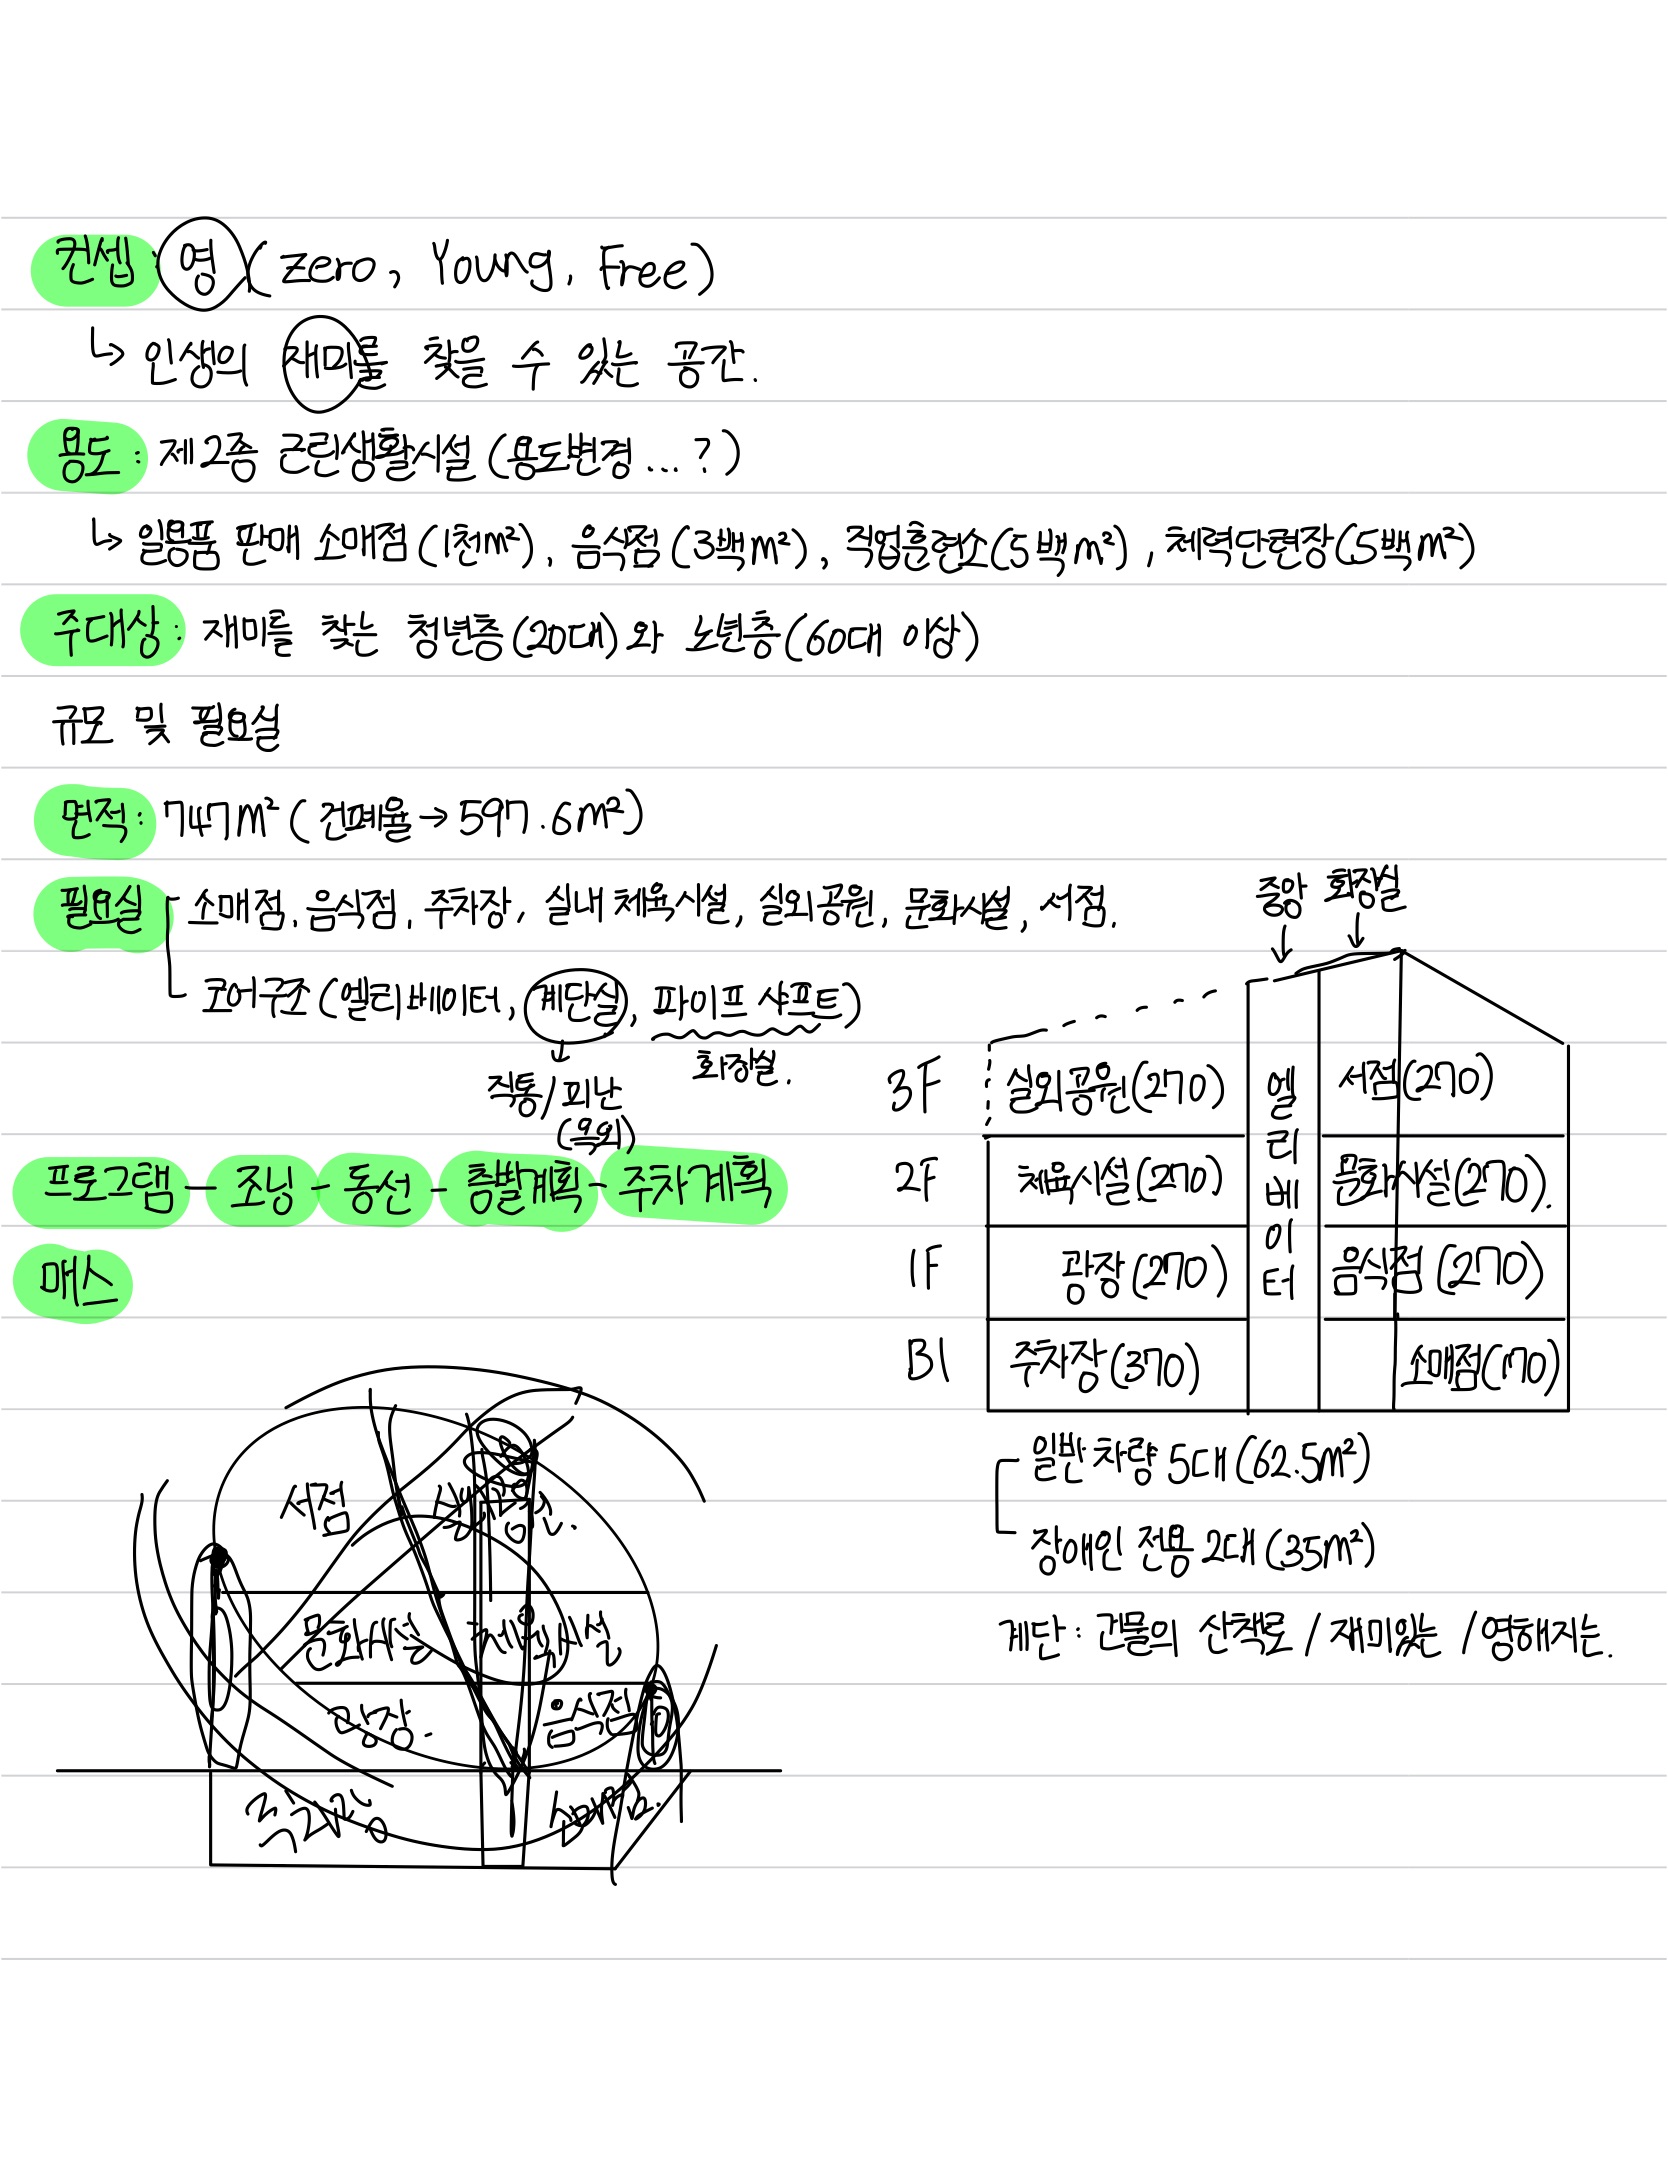 컨셉 : 영 (zero, Young, Free)
↳ 인생의 재미를 찾을 수 있는 공간.
용도 : 제2종 근린생활시설 (용도변경 ...?)
↳ 일용품 판매 소매점(1천m²), 음식점(3백m²), 직업훈련소(5백m²), 체력단련장(5백m²)
주대상 : 재미를 찾는 청년층(20대)와 노년층(60대 이상)
규모 및 필요실
면적 : 747m² (건폐율→597.6m²)
필요실 소매점, 음식점, 주차장, 실내 체육시설, 실외공원, 문화시설, 서점.
코어구조(엘리베이터, 계단실, 파이프 샤프트)
화장실.
직통/피난
(옥외)
프로그램 - 조닝 - 동선 - 층별계획 - 주차계획
매스
중앙 화장실
3F 실외공원(270) 서점(270)
2F 체육시설(270) 문화시설(270).
1F 광장(270) 음식점(270)
B1 주차장(370) 소매점(170)
엘리베이터
일반 차량 5대(62.5m²)
장애인 전용 2대(35m²)
계단 : 건물의 산책로 / 재미있는 / 영해지는.
서점
문화시설 체육시설
광장. 음식점
소매점.